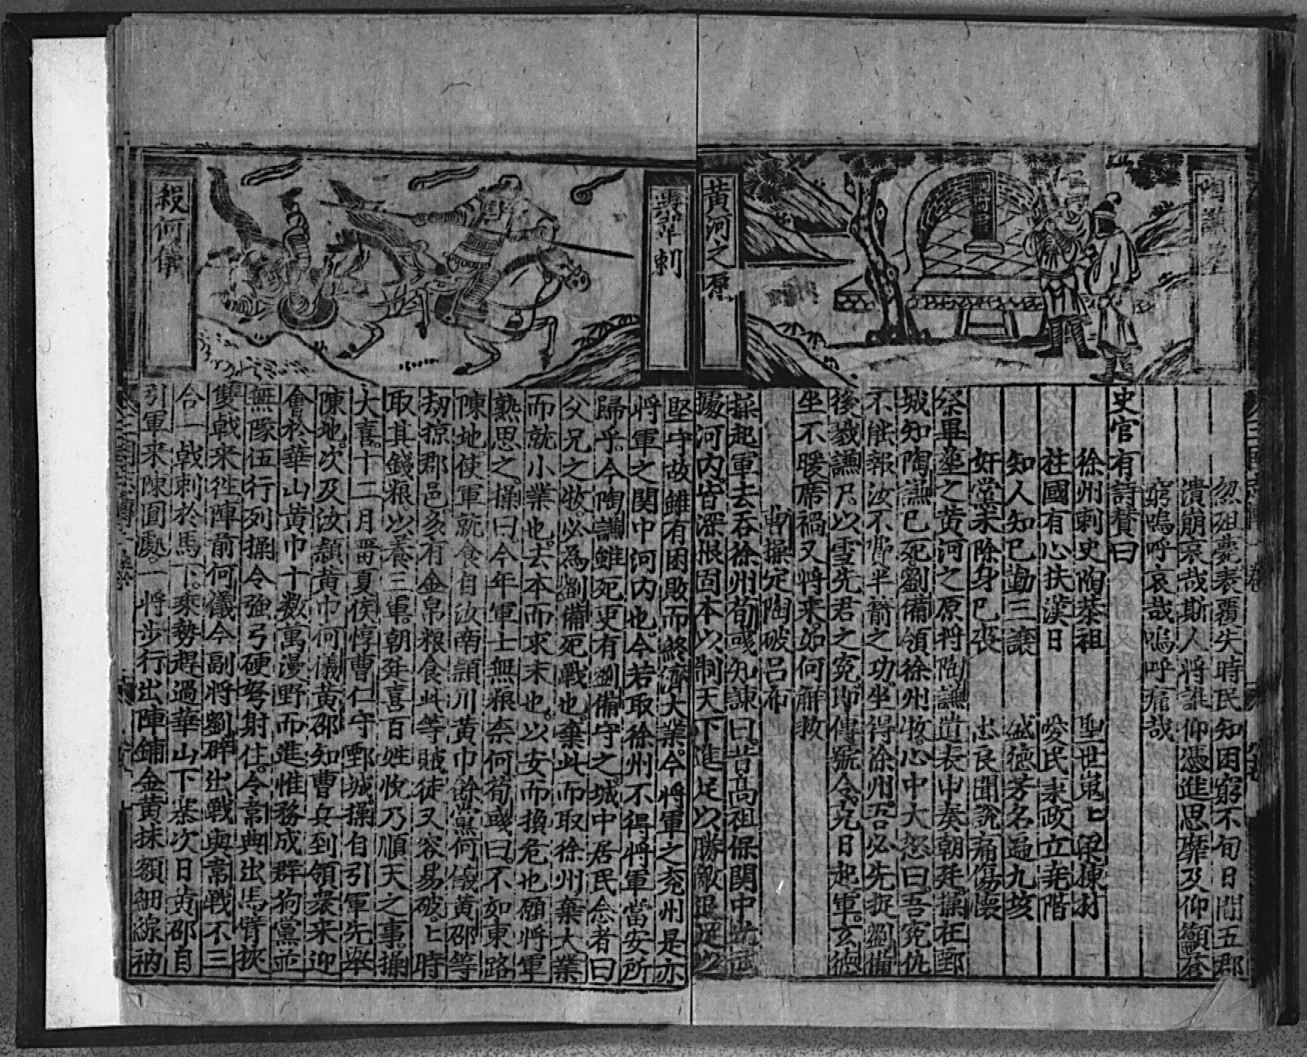 黄河之原
刺
殺何儀
忽殂薨衰覆失時民知困窮不旬日間五郡
潰崩哀哉斯人將誰仰憑進思靡及仰籲蒼
窮嗚呼哀哉嗚呼痛哉
史官有詩賛曰
徐州刺史陶恭祖 聖世嵬上梁棟材
柱國有心扶漢日 民求政立尭階
知人知已勳三讓 盛德芳名遍九垓
奸黨未除身已喪 忠良聞說痛傷懷
祭畢塟之黄河之原將陶謙遺表申奏朝廷操在鄄
城知陶謙已死劉備領徐州牧心中大怒曰吾冤仇
不能報汝不費半箭之功坐得徐州吾必先捉劉備
後戮謙尸以雪先君之冤即傳號令尅日起軍玄德
坐不暖席禍又將來如何觧救
曹操定陶破呂布
操起軍去吞徐州荀彧知諫曰昔高祖保関中光武
據河内皆深根固本以制天下進足以勝敵退足以
堅守故雖有困敗而終濟大業今將軍之兖州是亦
將軍之関中河内也今若取徐州不得將軍當安所
歸乎今陶謙雖死更有劉備守之城中居民念者曰
父兄之讐必為劉備死戰也棄此而取徐州棄大業
而就小業也去本而求末也以安而換危也願將軍
熟思之操曰今年軍士無粮奈何荀彧曰不如東路
陳地使軍就食自汝南頴川黄巾餘黨何儀黄邵等
刼掠郡邑多有金帛粮食此等賊徒又容易破上時
取其錢粮以養三軍朝廷喜百姓悅乃順天之事操
大喜十二月畱夏侯惇曹仁守鄄城操自引軍先畧
陳地次及汝頴黄巾何儀黄邵知曹兵到領衆来迎
會於華山黄巾十數萬漫野而進惟務成群狗黨而
無隊伍行列操令強弓硬弩射住令常典出馬臂挾
雙戟来徃陣前何儀令副將劉辟出戰與常戰不三
合一戟刺於馬下乘勢趕過華山下塞次日黄邵自
引軍来陳圓處一將步行出陣鋪金黄抹額細線衲